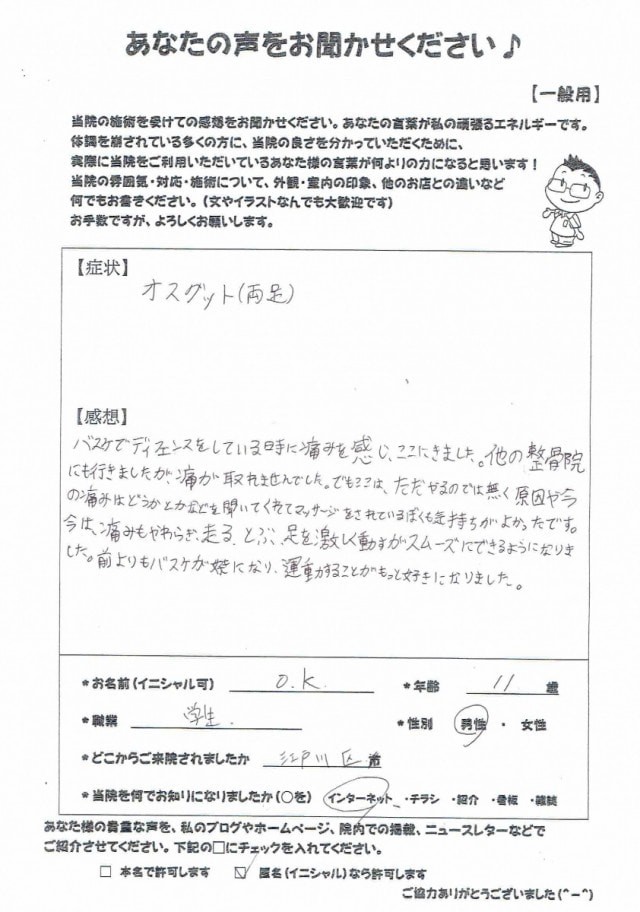 あなたの声をお聞かせください♪
【一般用】
当院の施術を受けての感想をお聞かせください。あなたの言葉が私の頑張るエネルギーです。
体調を崩されている多くの方に、当院の良さを分かっていただくために、
実際に当院をご利用いただいているあなた様の言葉が何よりの力になると思います！
当院の雰囲気・対応・施術について、外観・室内の印象、他のお店との違いなど
何でもお書きください。（文やイラストなんでも大歓迎です）
お手数ですが、よろしくお願いします。
【症状】
オスグット(両足)
【感想】
バスケでディフェンスをしている時に痛みを感じ、ここにきました。他の整骨院
にも行きましたが痛が取れませんでした。でもここは、ただやるのでは無く原因や今
の痛みはどうかとかなどを聞いてくれてマッサージをされているぼくも気持ちがよかったです。
今は、痛みもやわらぎ、走る、とぶ、足を激しく動すがスムーズにできるようになりま
した。前よりもバスケが楽になり、運動することがもっと好きになりました。
*お名前(イニシャル可) O.K. *年齢 11 歳
*職業 学生. *性別 男性 ・ 女性
*どこからご来院されましたか 江戸川区 市
*当院を何でお知りになりましたか(○を) インターネット ・チラシ ・紹介 ・看板 ・雑誌
あなた様の貴重な声を、私のブログやホームページ、院内での掲載、ニュースレターなどで
ご紹介させてください。下記の□にチェックを入れてください。
□ 本名で許可します ☑ 匿名(イニシャル)なら許可します
ご協力ありがとうございました(^-^)